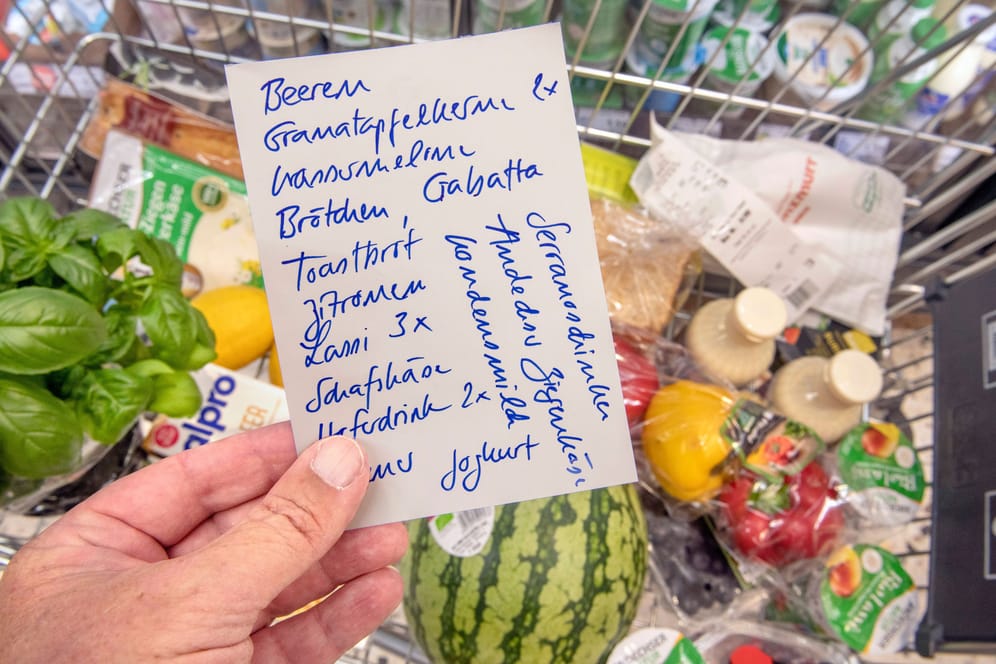 Beeren
Granatapfelkerne 2x
Wassermelone
Brötchen, Gabatta
Toastbrot
Zitronen
Lassi 3x
Schafskäse
Haferdrink 2x
Joghurt
Serranoschinken
Andechser Ziegenkäse
Kondensmilch
alpro